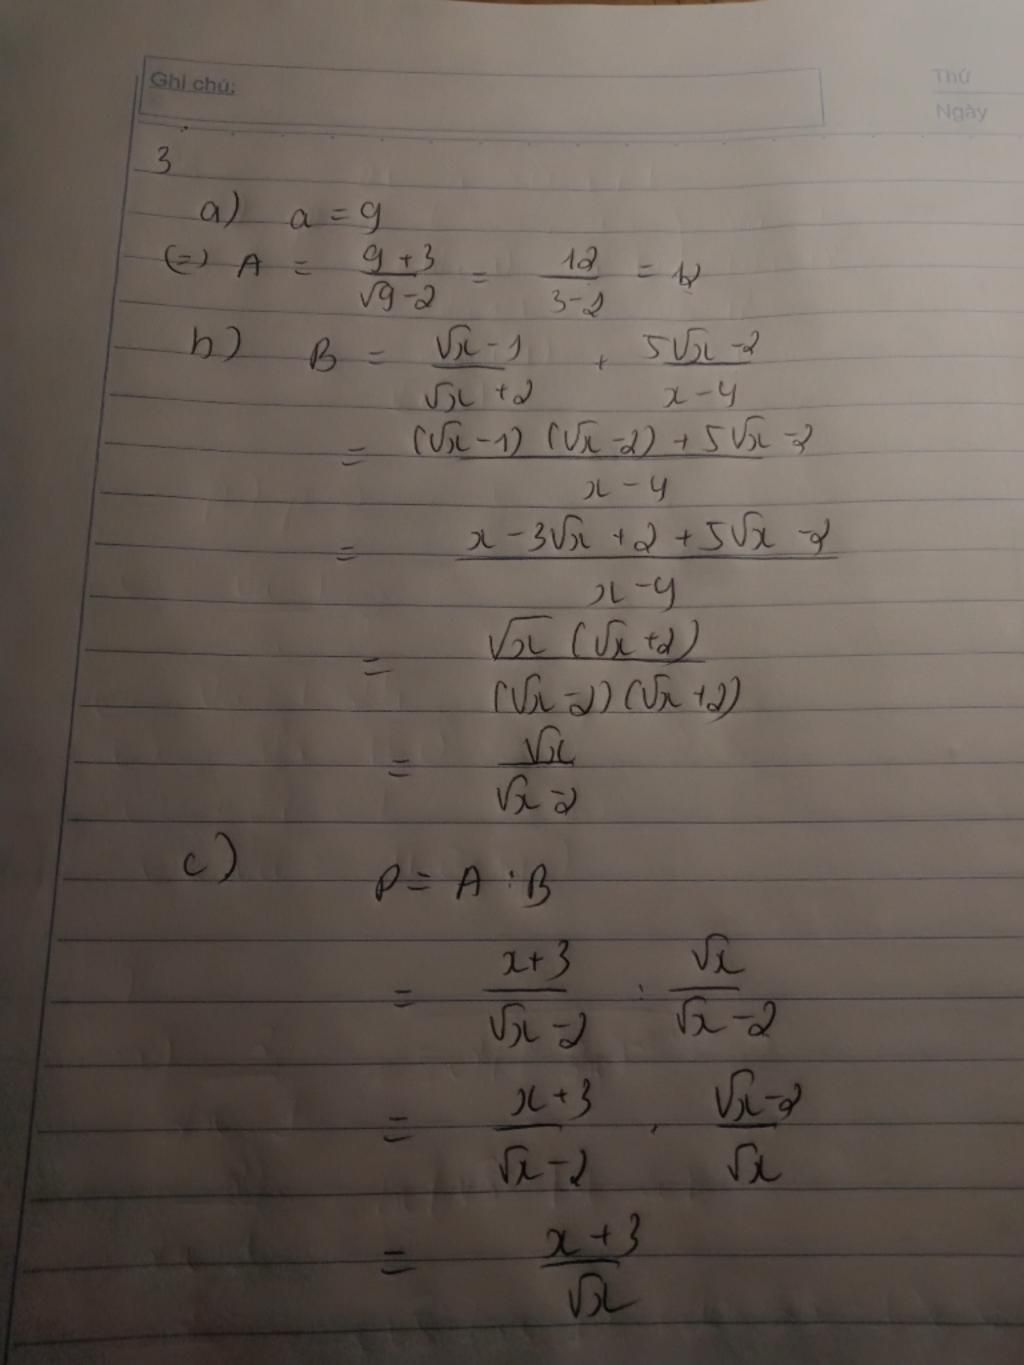 Ghi chú:
Thứ
Ngày
3
a) a = 9
(=) A = \frac{9+3}{\sqrt{9}-2} = \frac{12}{3-2} = 12
b) B = \frac{\sqrt{x}-1}{\sqrt{x}+2} + \frac{5\sqrt{x}-2}{x-4}
= \frac{(\sqrt{x}-1)(\sqrt{x}-2)+5\sqrt{x}-2}{x-4}
= \frac{x-3\sqrt{x}+2+5\sqrt{x}-2}{x-4}
= \frac{\sqrt{x}(\sqrt{x}+2)}{(\sqrt{x}-2)(\sqrt{x}+2)}
= \frac{\sqrt{x}}{\sqrt{x}-2}
c) P = A : B
= \frac{x+3}{\sqrt{x}-2} : \frac{\sqrt{x}}{\sqrt{x}-2}
= \frac{x+3}{\sqrt{x}-2} . \frac{\sqrt{x}-2}{\sqrt{x}}
= \frac{x+3}{\sqrt{x}}